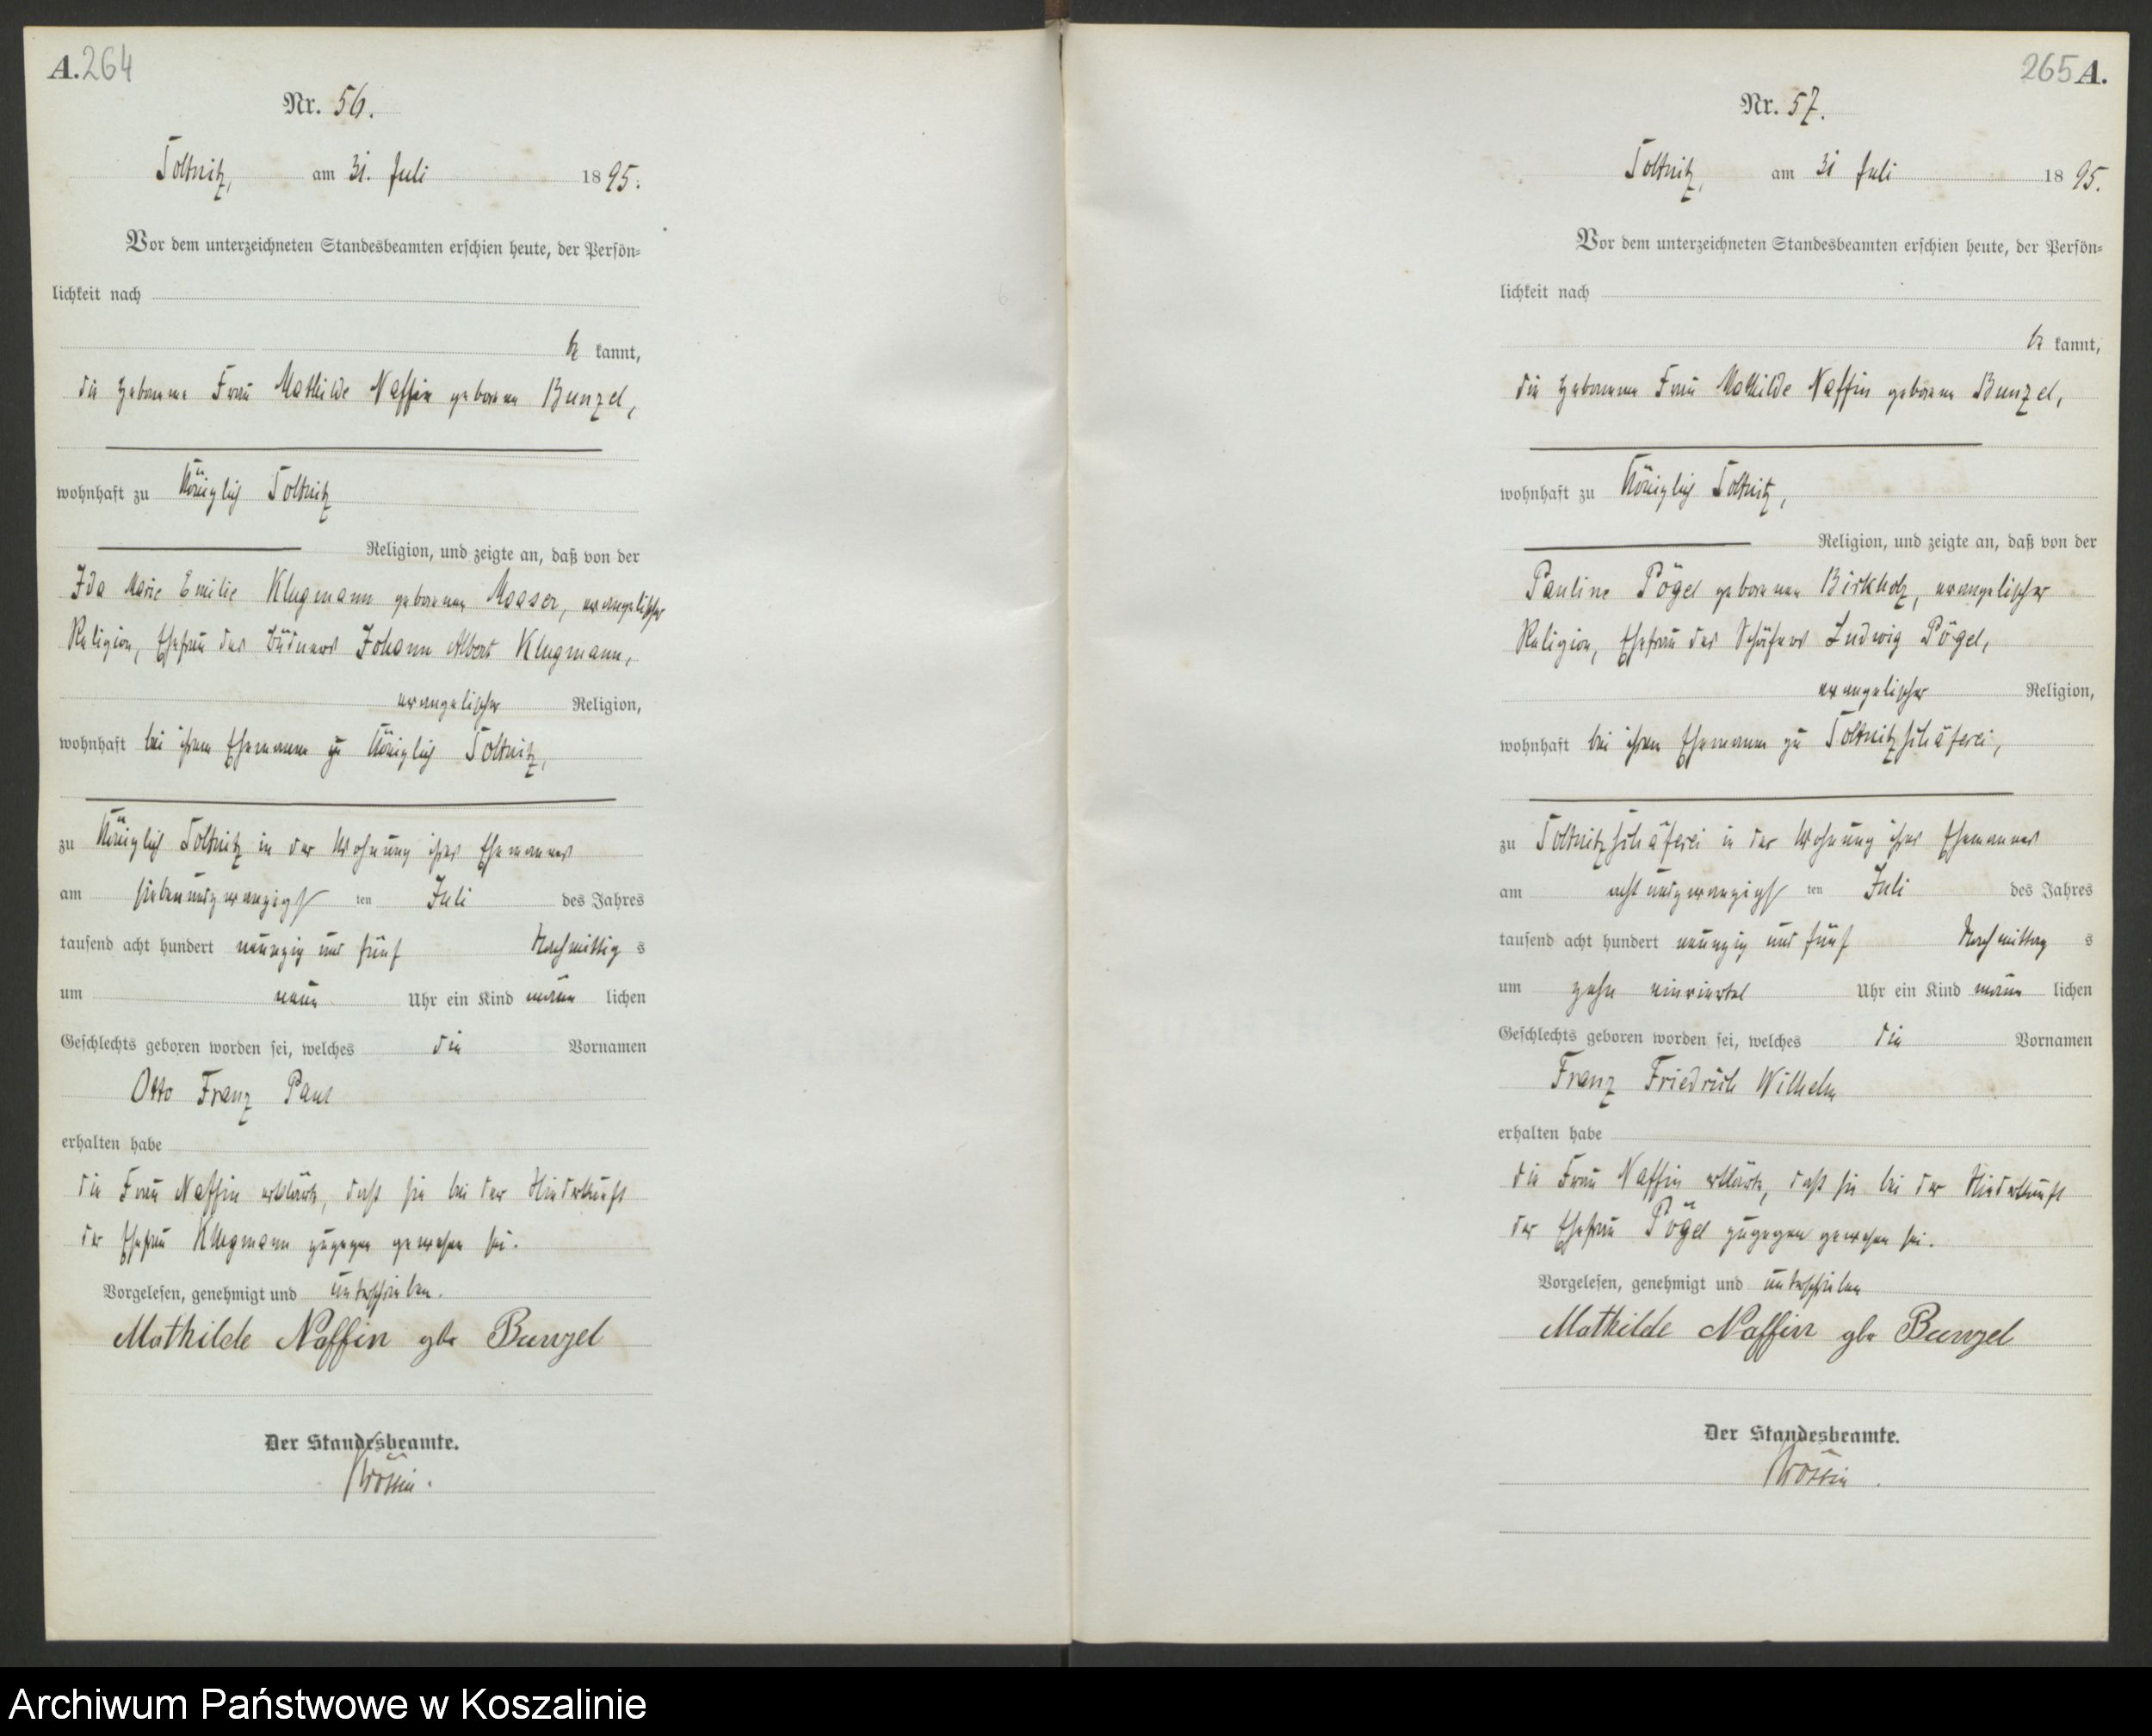 A. 264
Nr. 56.
Soltnitz, am 31. Juli 1895.
Vor dem unterzeichneten Standesbeamten erschien heute, der Persön-
lichkeit nach
be kannt,
die Hebamme Frau Mathilde Naffin geborene Bunzel,
wohnhaft zu Königlich Soltnitz
Religion, und zeigte an, daß von der
Ida Marie Emilie Klugmann geborenen Maaser, evangelischer
Religion, Ehefrau des Büdners Johann Albert Klugmann,
evangelischer Religion,
wohnhaft bei ihrem Ehemann zu Königlich Soltnitz,
zu Königlich Soltnitz in der Wohnung ihres Ehemannes
am siebenundzwanzigsten Juli des Jahres
tausend acht hundert neunzig und fünf Nachmittags
um neun Uhr ein Kind männlichen
Geschlechts geboren worden sei, welches die Vornamen
Otto Franz Paul
erhalten habe
die Frau Naffin erklärte, daß sie bei der Niederkunft
der Ehefrau Klugmann zugegen gewesen sei.
Vorgelesen, genehmigt und unterschrieben.
Mathilde Naffin gb Bunzel
Der Standesbeamte.
265 A.
Nr. 57.
Soltnitz, am 31 Juli 1895.
Vor dem unterzeichneten Standesbeamten erschien heute, der Persön-
lichkeit nach
be kannt,
die Hebamme Frau Mathilde Naffin geborene Bunzel,
wohnhaft zu Königlich Soltnitz,
Religion, und zeigte an, daß von der
Pauline Pögel geborenen Birkholz, evangelischer
Religion, Ehefrau des Schäfers Ludwig Pögel,
evangelischer Religion,
wohnhaft bei ihrem Ehemann zu Soltnitzschäferei,
zu Soltnitzschäferei in der Wohnung ihres Ehemannes
am achtundzwanzigsten Juli des Jahres
tausend acht hundert neunzig und fünf Nachmittags
um zehn einviertel Uhr ein Kind männlichen
Geschlechts geboren worden sei, welches die Vornamen
Franz Friedrich Wilhelm
erhalten habe
die Frau Naffin erklärte, daß sie bei der Niederkunft
der Ehefrau Pögel zugegen gewesen sei.
Vorgelesen, genehmigt und unterschrieben
Mathilde Naffin gb Bunzel
Der Standesbeamte.
Archiwum Państwowe w Koszalinie